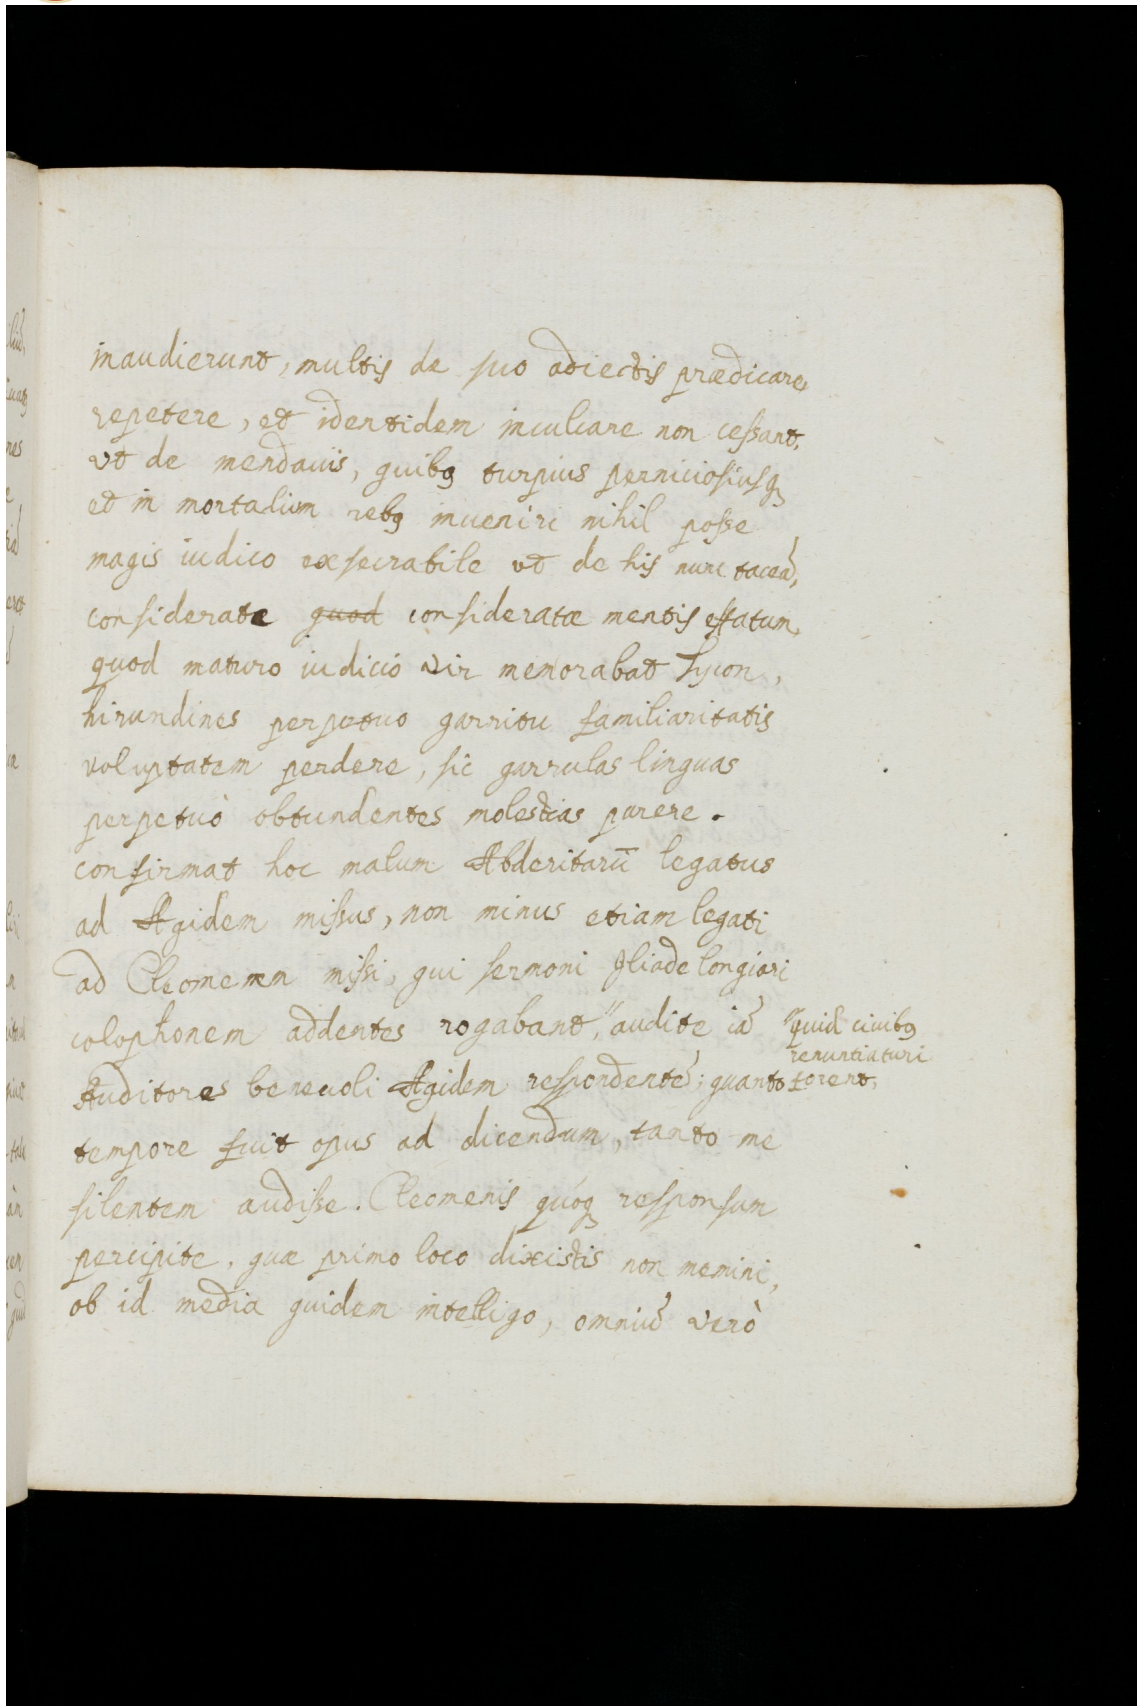 inaudierunt, multis de suo adiectis prædicare,
repetere, et identidem inculcare non cessant,
vt de mendaciis, quibꝫ turpius perniciosiusqꝫ
et in mortalium rebꝫ inueniri nihil posse
magis iudico exsecrabile vt de his nunc taceã,
considerate quod consideratæ mentis effatum,
quod maturo iudicio vir memorabat Lycon,
hirundines perpetuo garritu familiaritatis
voluptatem perdere, sic garrulas linguas
perpetuò obtundentes molestias parere.
confirmat hoc malum Abderitarũ legatus
ad Agidem missus, non minus etiam legati
ad Cleomenem missi, qui sermoni Iliade longiori
colophonem addentes rogabant," audite iã
"quid ciuibꝫ
renuntiaturi
forent,
Auditores beneuoli Agidem respondentẽ; quanto
tempore fuit opus ad dicendum, tanto me
silentem audisse. Cleomenis quóqꝫ responsum
percipite, quæ primo loco dixistis non memini,
ob id media quidem intelligo, omniũ verò